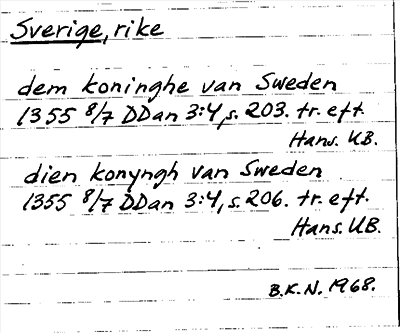 Sverige, rike
dem koninghe van Sweden
1355 8/7 DDan 3:4, s. 203. tr. eft.
Hans. UB.
dien konyngh van Sweden
1355 8/7 DDan 3:4, s. 206. tr. eft.
Hans. UB.
B.K.N. 1968.